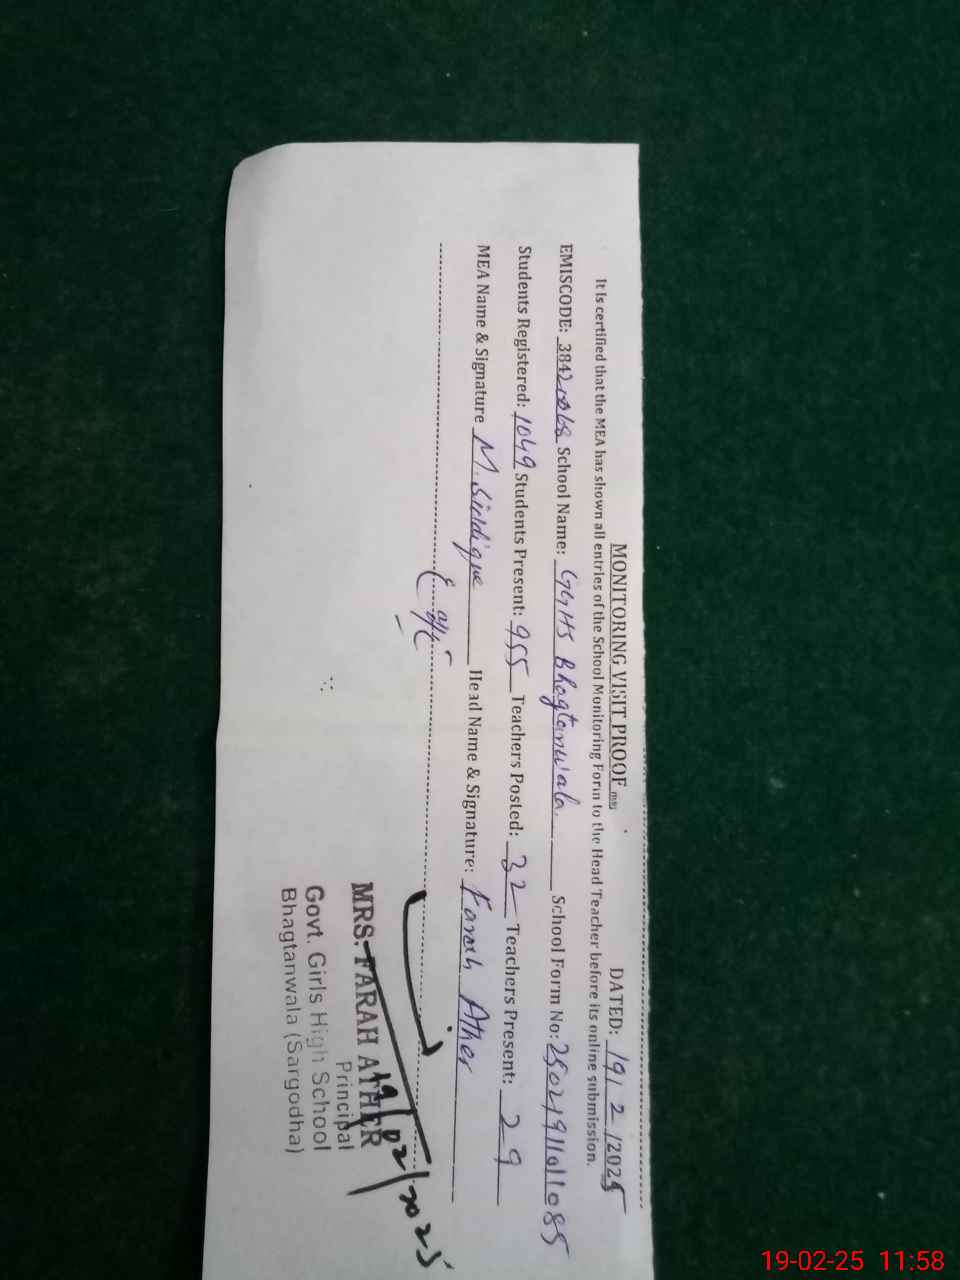 MONITORING VISIT PROOF DATED: 19/2/2025
It is certified that the MEA has shown all entries of the School Monitoring Form to the Head Teacher before its online submission.
EMISCODE: 38421068 School Name: GGHS Bhagtanwala School Form No: 25021911011085
Students Registered: 1049 Students Present: 955 Teachers Posted: 32 Teachers Present: 29
MEA Name & Signature M. Siddique Head Name & Signature: Farah Ather
MRS. FARAH ATHER
Principal
19/02/2025
Govt. Girls High School
Bhagtanwala (Sargodha)
19-02-25 11:58